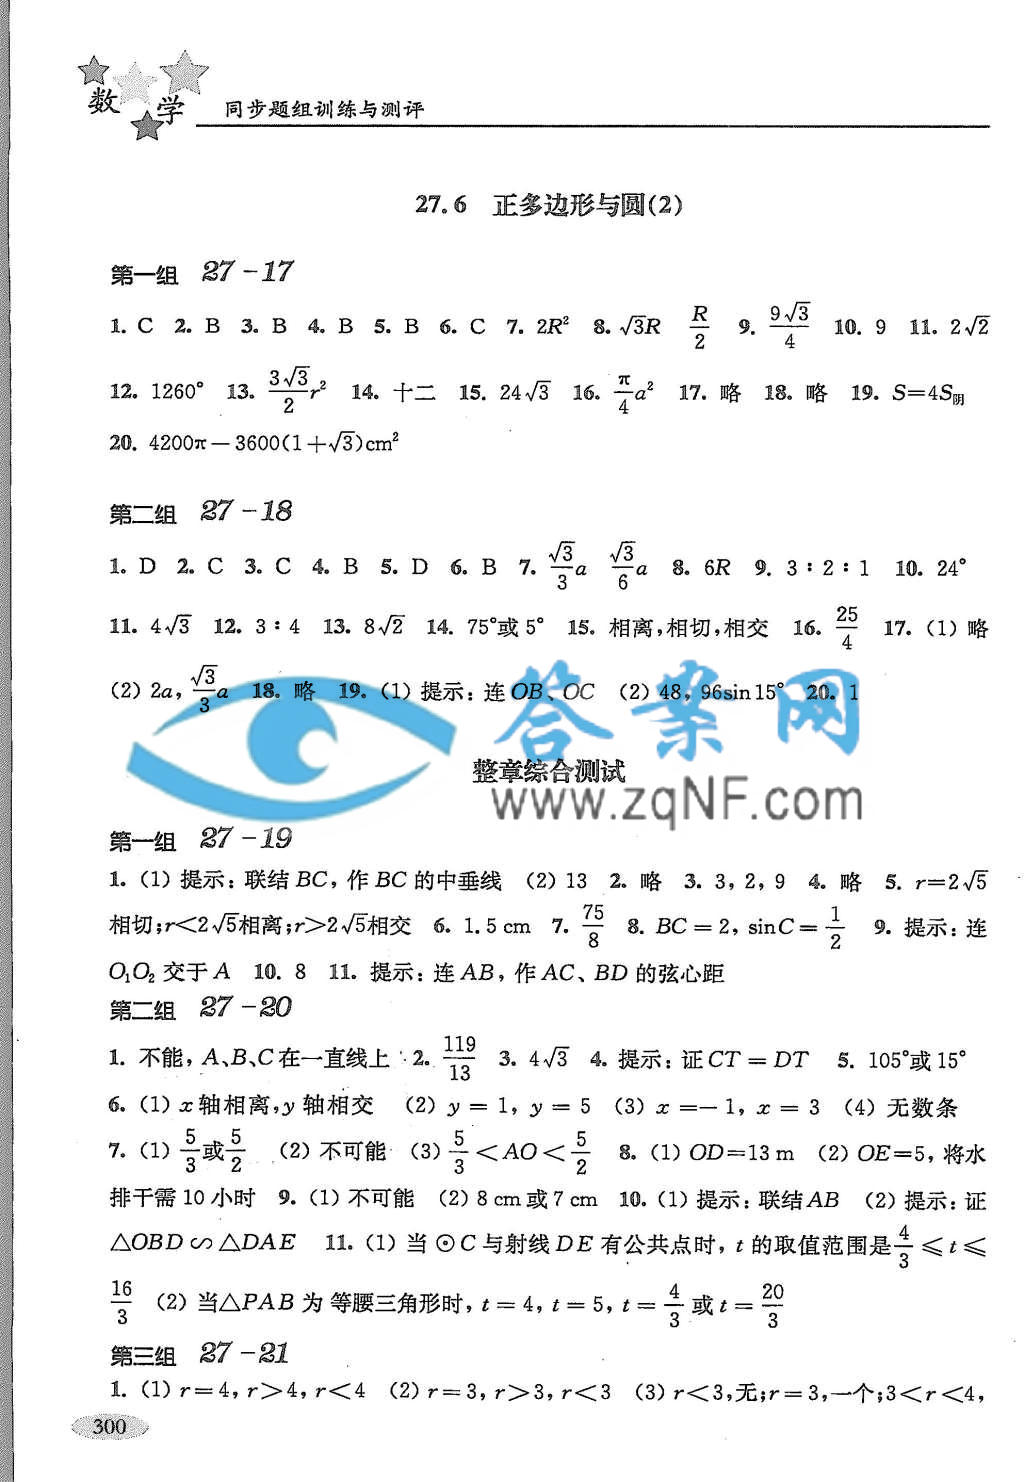 数学
同步题组训练与测评
27.6 正多边形与圆(2)
第一组 27-17
1. C 2. B 3. B 4. B 5. B 6. C 7. 2R² 8. √3R R/2 9. 9√3/4 10. 9 11. 2√2
12. 1260° 13. 3√3/2 r² 14. 十二 15. 24√3 16. π/4 a² 17. 略 18. 略 19. S=4S阴
20. 4200π-3600(1+√3)cm²
第二组 27-18
1. D 2. C 3. C 4. B 5. D 6. B 7. √3/3 a √3/6 a 8. 6R 9. 3:2:1 10. 24°
11. 4√3 12. 3:4 13. 8√2 14. 75°或5° 15. 相离,相切,相交 16. 25/4 17. (1) 略
(2) 2a, √3/3 a 18. 略 19. (1) 提示:连OB、OC (2) 48, 96sin15° 20. 1
答案网
整章综合测试
www.zqNF.com
第一组 27-19
1. (1) 提示:联结BC,作BC的中垂线 (2) 13 2. 略 3. 3, 2, 9 4. 略 5. r=2√5
相切;r<2√5相离;r>2√5相交 6. 1.5 cm 7. 75/8 8. BC=2, sinC=1/2 9. 提示:连
O₁O₂交于A 10. 8 11. 提示:连AB,作AC、BD的弦心距
第二组 27-20
1. 不能,A、B、C在一直线上 2. 119/13 3. 4√3 4. 提示:证CT=DT 5. 105°或15°
6. (1) x轴相离,y轴相交 (2) y=1, y=5 (3) x=-1, x=3 (4) 无数条
7. (1) 5/3或5/2 (2) 不可能 (3) 5/3<AO<5/2 8. (1) OD=13 m (2) OE=5,将水
排干需10小时 9. (1) 不可能 (2) 8 cm或7 cm 10. (1) 提示:联结AB (2) 提示:证
△OBD∽△DAE 11. (1) 当⊙C与射线DE有公共点时,t的取值范围是4/3≤t≤
16/3 (2) 当△PAB为等腰三角形时,t=4, t=5, t=4/3或t=20/3
第三组 27-21
1. (1) r=4, r>4, r<4 (2) r=3, r>3, r<3 (3) r<3,无;r=3,一个;3<r<4,
300